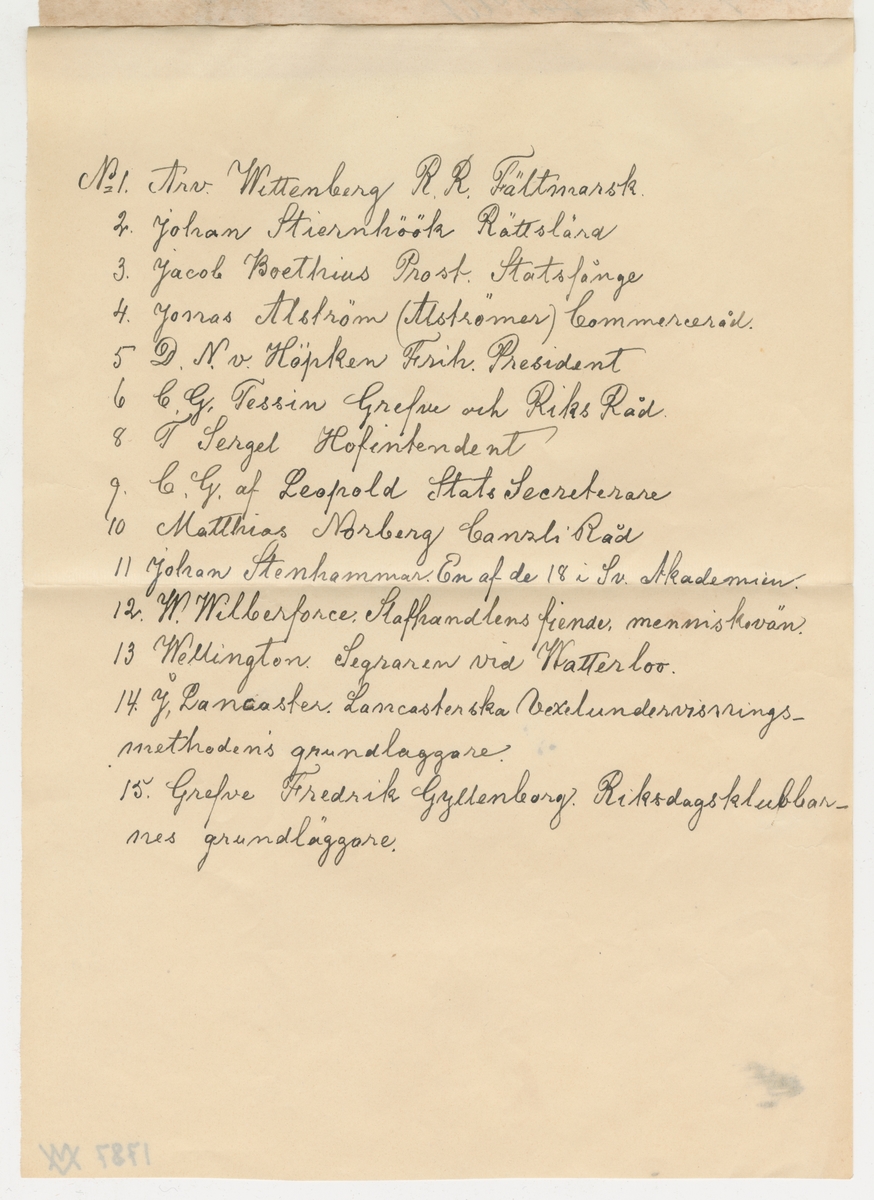 No 1. Arv. Wittenberg R. R. Fältmarsk.
2. Johan Stiernhöök Rättslärd
3. Jacob Boethius Prost. Statsfånge
4. Jonas Alström (Alströmer) Commerceråd.
5 D. N. v. Höpken Frih. President
6 C. G. Tessin Grefve och Riks Råd.
8 T Sergel Hofintendent
9. C. G. af Leopold Stats Secreterare
10 Matthias Norberg Canzli Råd
11 Johan Stenhammar. En af de 18 i Sv. Akademien.
12. W. Wilberforce. Slafhandlens fiende, menniskovän.
13 Wellington. Segraren vid Watterloo.
14. J. Lancaster. Lancasterska Vexelundervisnings-
methodens grundläggare.
15. Grefve Fredrik Gyllenborg. Riksdagsklubbar-
nes grundläggare.
1787